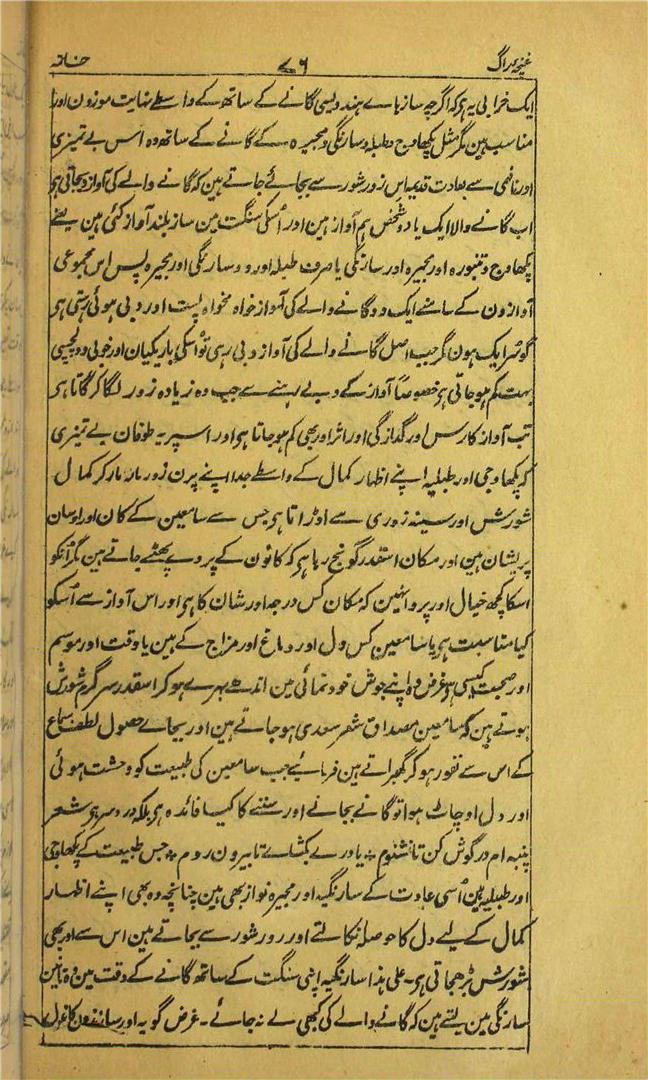 غنچۂ راگ ۷۶ خاتمہ
ایک خرابی یہ ہی کہ اگرچہ ساز ہاے ہند ویسی گانے کے ساتھ کے واسطے نہایت موزون اور
مناسب ہین مگر مثل پکھاوج و طبلہ و سارنگی و مجیرہ کے گانے کے ساتھ وہ اس بے تمیزی
اور نافہمی سے بعادت قدیمہ اس زور شور سے بجائے جاتے ہین کہ گانے والے کی آواز دبجاتی ہی
اب گانے والا ایک یا دو شخص ہم آواز ہین اور اُسکی سنگت مین ساز بلند آواز کئی ہین یعنے
پکھاوج و تنبورہ اور مجیرہ اور سارنگی یا صرف طبلہ اور دو سارنگی اور مجیرہ پس اس مجموعی
آوازون کے سامنے ایک دو گانے والے کی آواز خواہ مخواہ پست اور دبی ہوئی رہتی ہی
گو سُر ایک ہون مگر جب اصل گانے والے کی آواز دبی رہی تو اُسکی باریکیان اور خوبی و دلچسپی
بہت کم ہو جاتی ہی خصوصاً آواز کے دبے رہنے سے جب وہ زیادہ زور لگا کر گاتا ہی
تب آواز کا رس اور گدازگی اور اثر اور بھی کم ہو جاتا ہی اور اسپر یہ طوفان بے تمیزی
کہ پکھاوجی اور طبلیہ اپنے اظہار کمال کے واسطے جدا اپنے پرن زور مار مار کر کمال
شورش اور سینہ زوری سے اوڑاتا ہی جس سے سامعین کے کان اور اوسان
پریشان ہین اور مکان استقدر گونج رہا ہی کہ کانون کے پردے پھٹے جاتے ہین مگر اُنکو
اسکا کچھ خیال اور پروا نہین کہ مکان کس درجہ اور شان کا ہی اور اس آواز سے اُسکو
کیا مناسبت ہی یا سامعین کس دل اور دماغ اور مزاج کے ہین یا وقت اور موسم
اور صحبت کیسی ہی غرض وہ اپنے جوش خودنمائی مین اندھے بہرے ہو کر اسقدر سرگرم شورش
ہوتے ہین کہ سامعین مصداق شعر سعدی ہو جاتے ہین اور بجاے حصول لطف سماع
کے اس سے نفور ہو کر گھبراتے ہین فرمائیے جب سامعین کی طبیعت کو وحشت ہوئی
اور دل اوچاٹ ہوا تو گانے بجانے اور سننے کا کیا فائدہ ہی بلکہ دردسر ہی شعر
پنبہ ام در گوش کن تا نشنوم ÷ یا درے بکشاے تا بیرون روم ÷ جس طبیعت کے پکھاوجی
اور طبلیہ ہین اُسی عادت کے سارنگیہ اور مجیرہ نواز بھی ہین چنانچہ وہ بھی اپنے اظہار
کمال کے لیے دل کا حوصلہ نکالتے اور زور شور سے بجاتے ہین اس سے اور بھی
شورش بڑھجاتی ہی۔ علی ہذا سارنگیہ اپنی سنگت کے ساتھ گانے کے وقت مین وہ تانین
سارنگی مین لیتے ہین کہ گانے والے کی کبھی لے نہ جائے۔ غرض گویہ اور سازندون کا غول